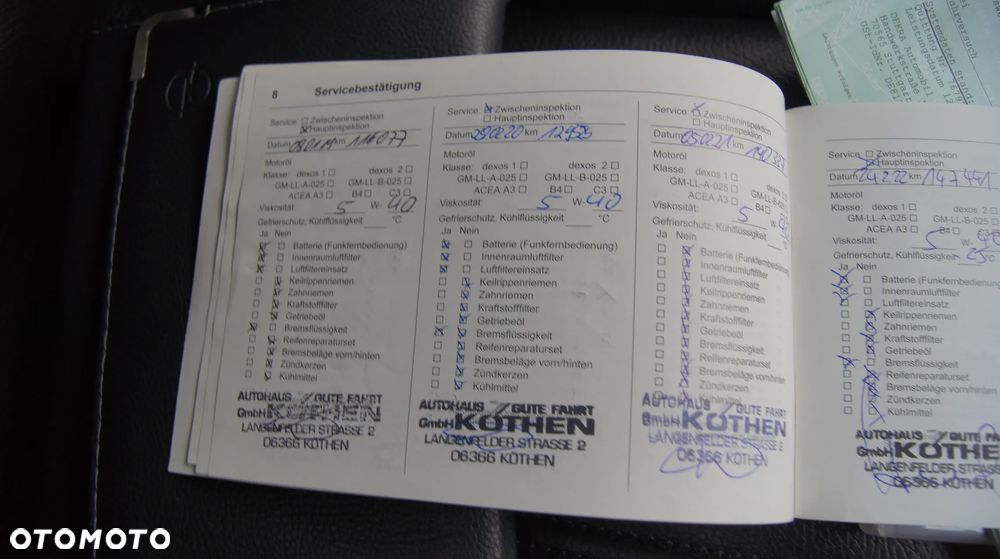 8 Servicebestätigung
Service: Zwischeninspektion
Hauptinspektion
Datum km
Motoröl
Klasse: dexos 1 dexos 2
GM-LL-A-025 GM-LL-B-025
ACEA A3 B4 C3
Viskosität: 5 W- 40
Gefrierschutz, Kühlflüssigkeit °C
Ja Nein
Batterie (Funkfernbedienung)
Innenraumluftfilter
Luftfiltereinsatz
Keilrippenriemen
Zahnriemen
Kraftstofffilter
Getriebeöl
Bremsflüssigkeit
Reifenreparaturset
Bremsbeläge vorn/hinten
Zündkerzen
Kühlmittel
AUTOHAUS GUTE FAHRT
GmbH KÖTHEN
LANGENFELDER STRASSE 2
06366 KÖTHEN
Service: Zwischeninspektion
Hauptinspektion
Datum km
Motoröl
Klasse: dexos 1 dexos 2
GM-LL-A-025 GM-LL-B-025
ACEA A3 B4 C3
Viskosität: 5 W- 40
Gefrierschutz, Kühlflüssigkeit °C
Ja Nein
Batterie (Funkfernbedienung)
Innenraumluftfilter
Luftfiltereinsatz
Keilrippenriemen
Zahnriemen
Kraftstofffilter
Getriebeöl
Bremsflüssigkeit
Reifenreparaturset
Bremsbeläge vorn/hinten
Zündkerzen
Kühlmittel
AUTOHAUS GUTE FAHRT
GmbH KÖTHEN
LANGENFELDER STRASSE 2
06366 KÖTHEN
Service: Zwischeninspektion
Hauptinspektion
Datum 050221 km
Motoröl
Klasse: dexos 1 dexos 2
GM-LL-A-025
ACEA A3 B4
Viskosität: 5 W-
Gefrierschutz, Kühlflüssigkeit
Ja Nein
Batterie (Funkfernbedienung)
Innenraumluftfilter
Luftfiltereinsatz
Keilrippenriemen
Zahnriemen
Kraftstofffilter
Getriebeöl
Bremsflüssigkeit
Reifenreparaturset
Bremsbeläge vorn/hinten
Zündkerzen
Kühlmittel
AUTOHAUS GUTE FAHRT
GmbH KÖTHEN
LANGENFELDER STRASSE 2
06366 KÖTHEN
Service: Zwischeninspektion
Hauptinspektion
Datum 24222 km 147441
Motoröl
Klasse: dexos 1 dexos 2
GM-LL-A-025 GM-LL-B-025
ACEA A3 B4 C3
Viskosität: 5 W-
Gefrierschutz, Kühlflüssigkeit -25 °C
Ja Nein
Batterie
Innenraumluftfilter
Luftfiltereinsatz
Keilrippenriemen
Zahnriemen
Kraftstofffilter
Getriebeöl
Bremsflüssigkeit
Reifenreparaturset
Bremsbeläge vorn/hinten
Zündkerzen
Kühlmittel
AUTOHAUS GUTE FAH
GmbH KÖTHE
LANGENFELDER STRASSE
06366 KÖTHEN
DEKRA Automobil
Handwerkstraße
70565 Stuttgart
OTOMOTO